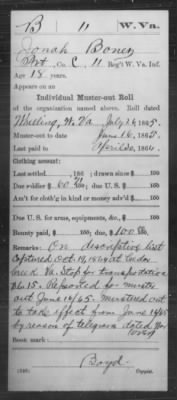 B 11 W. Va.
Jonah Boner
Pvt, Co. C, 11 Reg't W. Va. Inf.
Age 18 years.
Appears on an
Individual Muster-out Roll
of the organization named above. Roll dated
Wheeling, W. Va July 26, 1865.
Muster-out to date June 16, 1865.
Last paid to April 30, 1864.
Clothing account:
Last settled , 186 ; drawn since $ 100
Due soldier $ 60 100; due U. S. $ 100
Am't for cloth'g in kind or money adv'd $ 100
Due U. S. for arms, equipments, &c., $ 100
Bounty paid $ 100; due $ 100 100
Remarks: On descriptive list
Captured Oct. 19, 1864 at
Va. Stop for transportation
$6.15. Reported for muster
out June 16/65. Mustered out
to take effect from June 16/65
by reason of telegram dated
Book mark:
Boyd
Copyist.